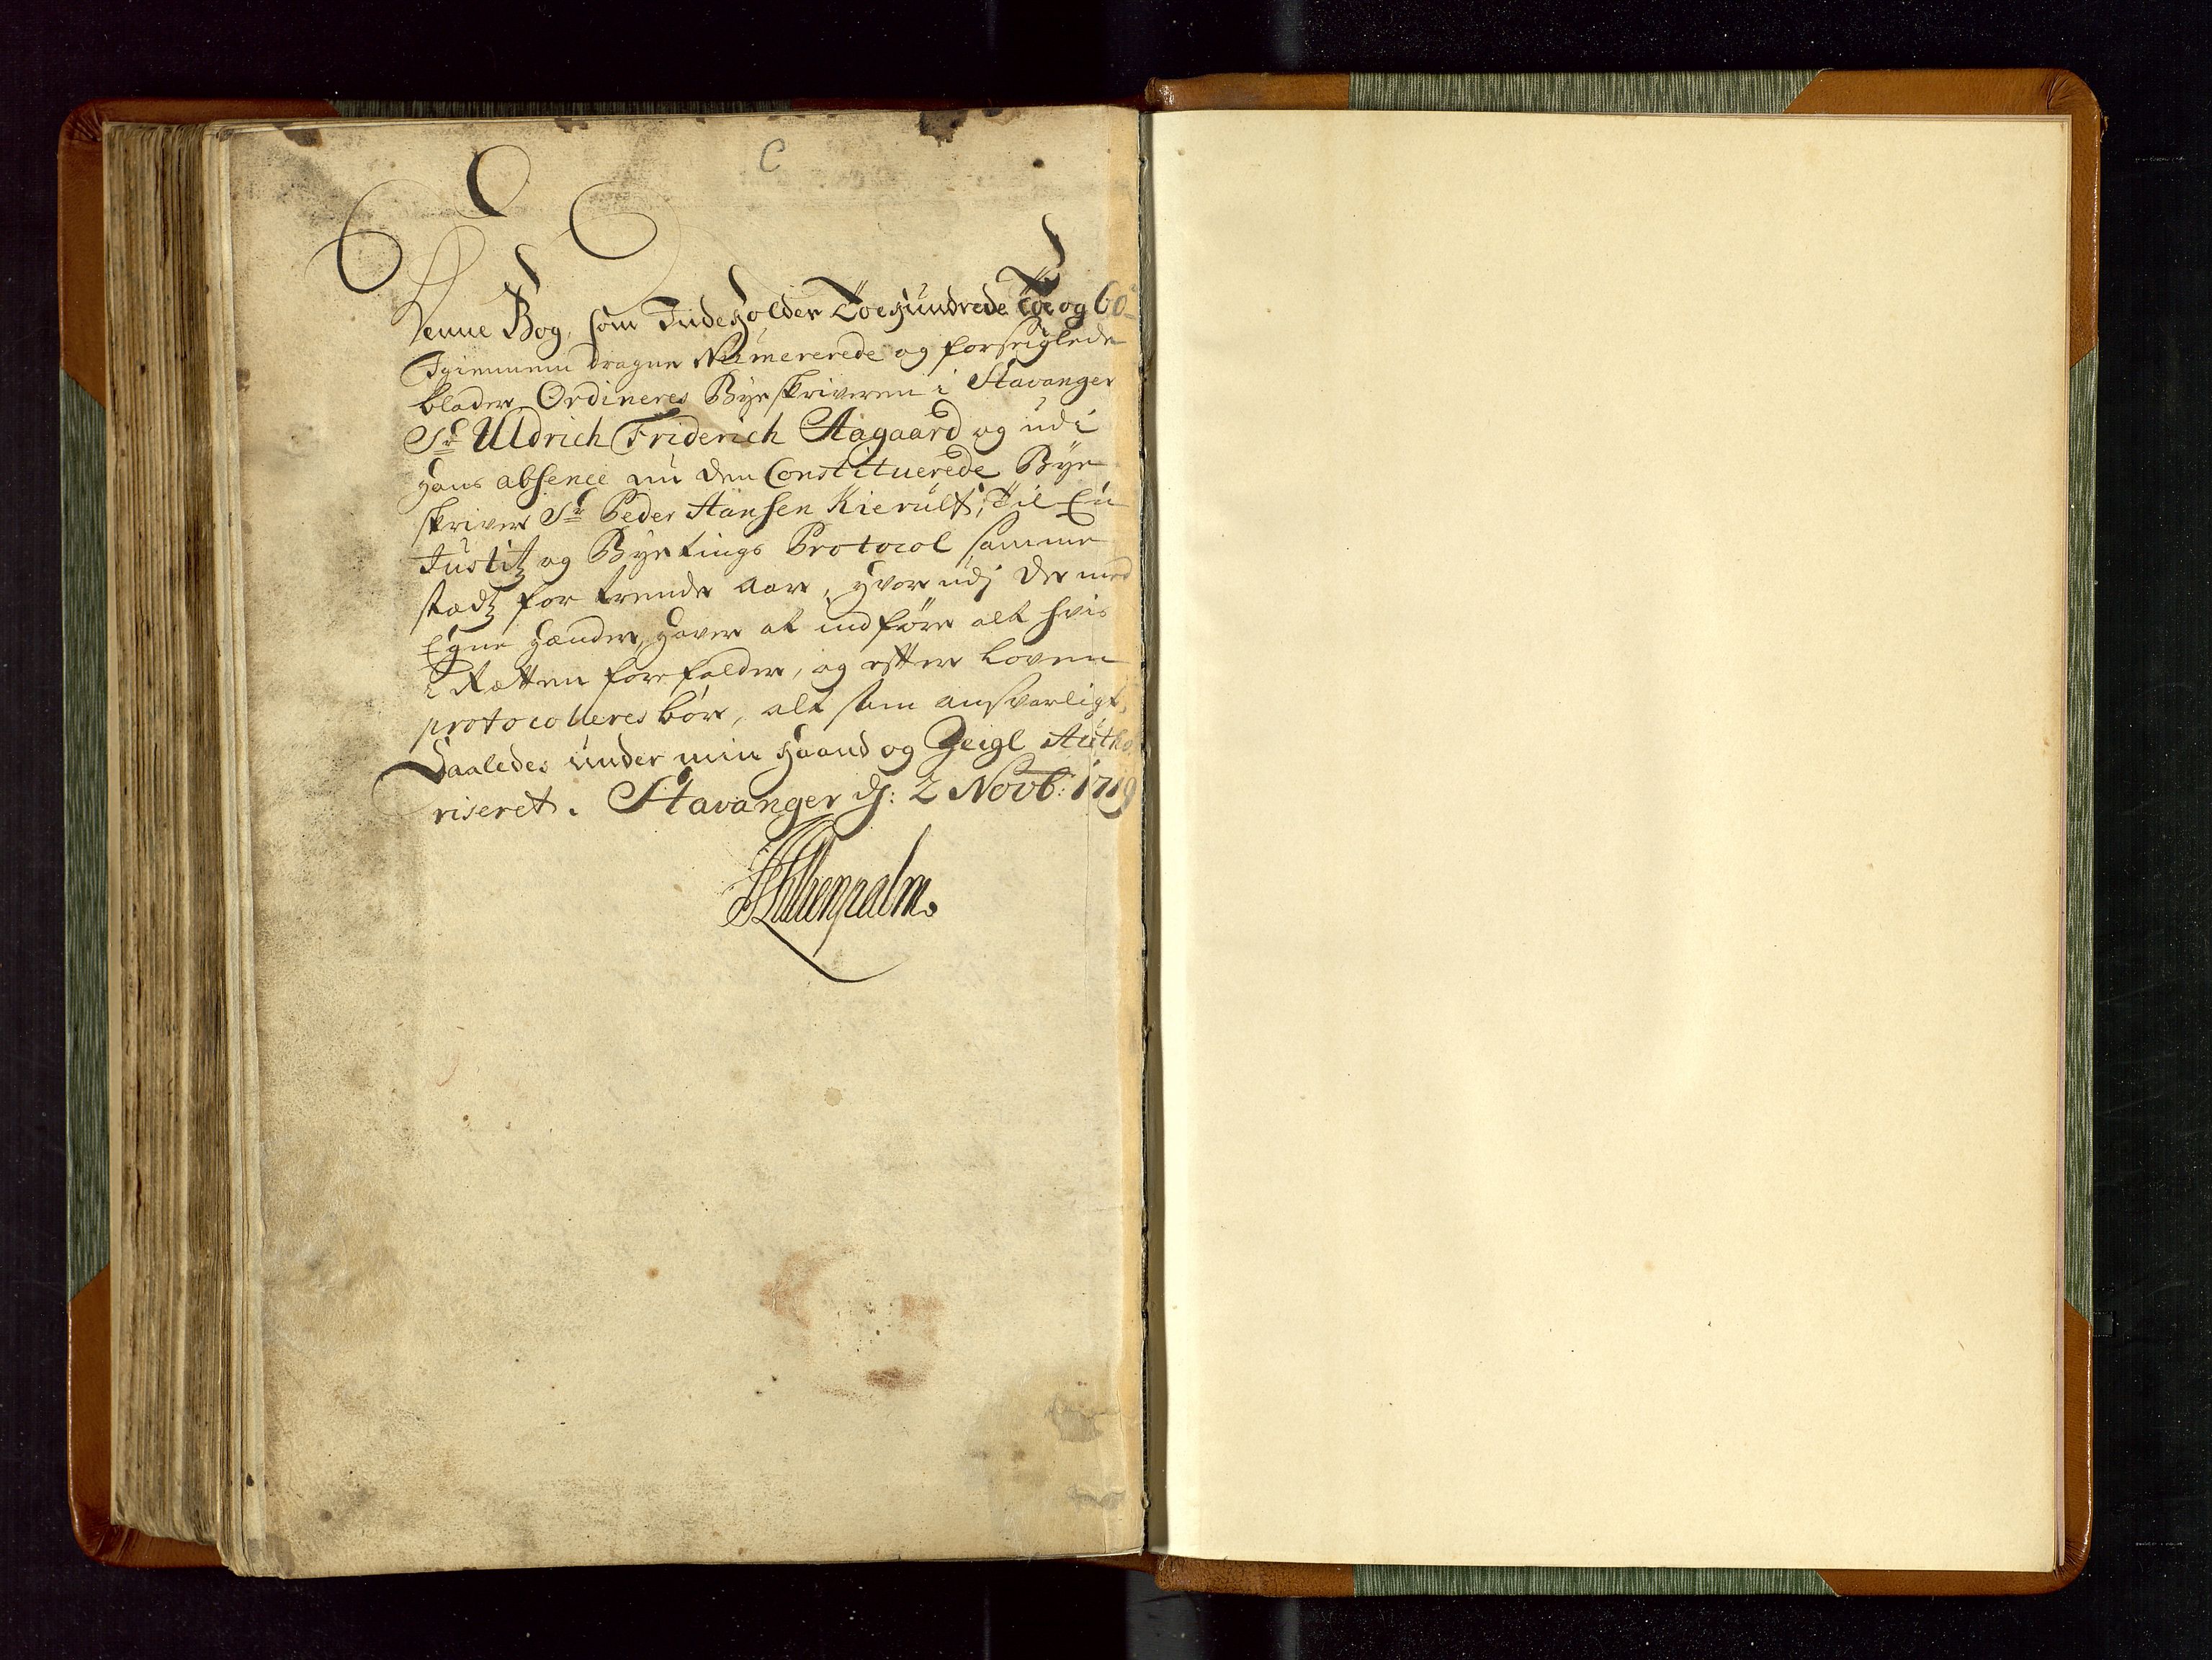 C
Denne Bog, som Indeholder Toehundrede Toe og 60
Igiennem dragne Numererede og forseiglede
blader, Ordineres Byeskriveren i Stavanger
Sr Uldrich Friderich Aagaard og udi
hans absence nu den Constituerede Bye
skriver Sr Peder Hansen Kierulf; Til En
Justitz og Byetings Protocol samme
stædz for trende Aar, hvorudj der med
Egne hænder, haver at indføre alt hvis
i Rætten forefalder, og efter Loven
protocolleres bør, alt som ansvarligt,
Saaledes under min Haand og Zeigl Autho
riseret. Stavanger dj: 2 Novb: 1719
Lillienpalm.